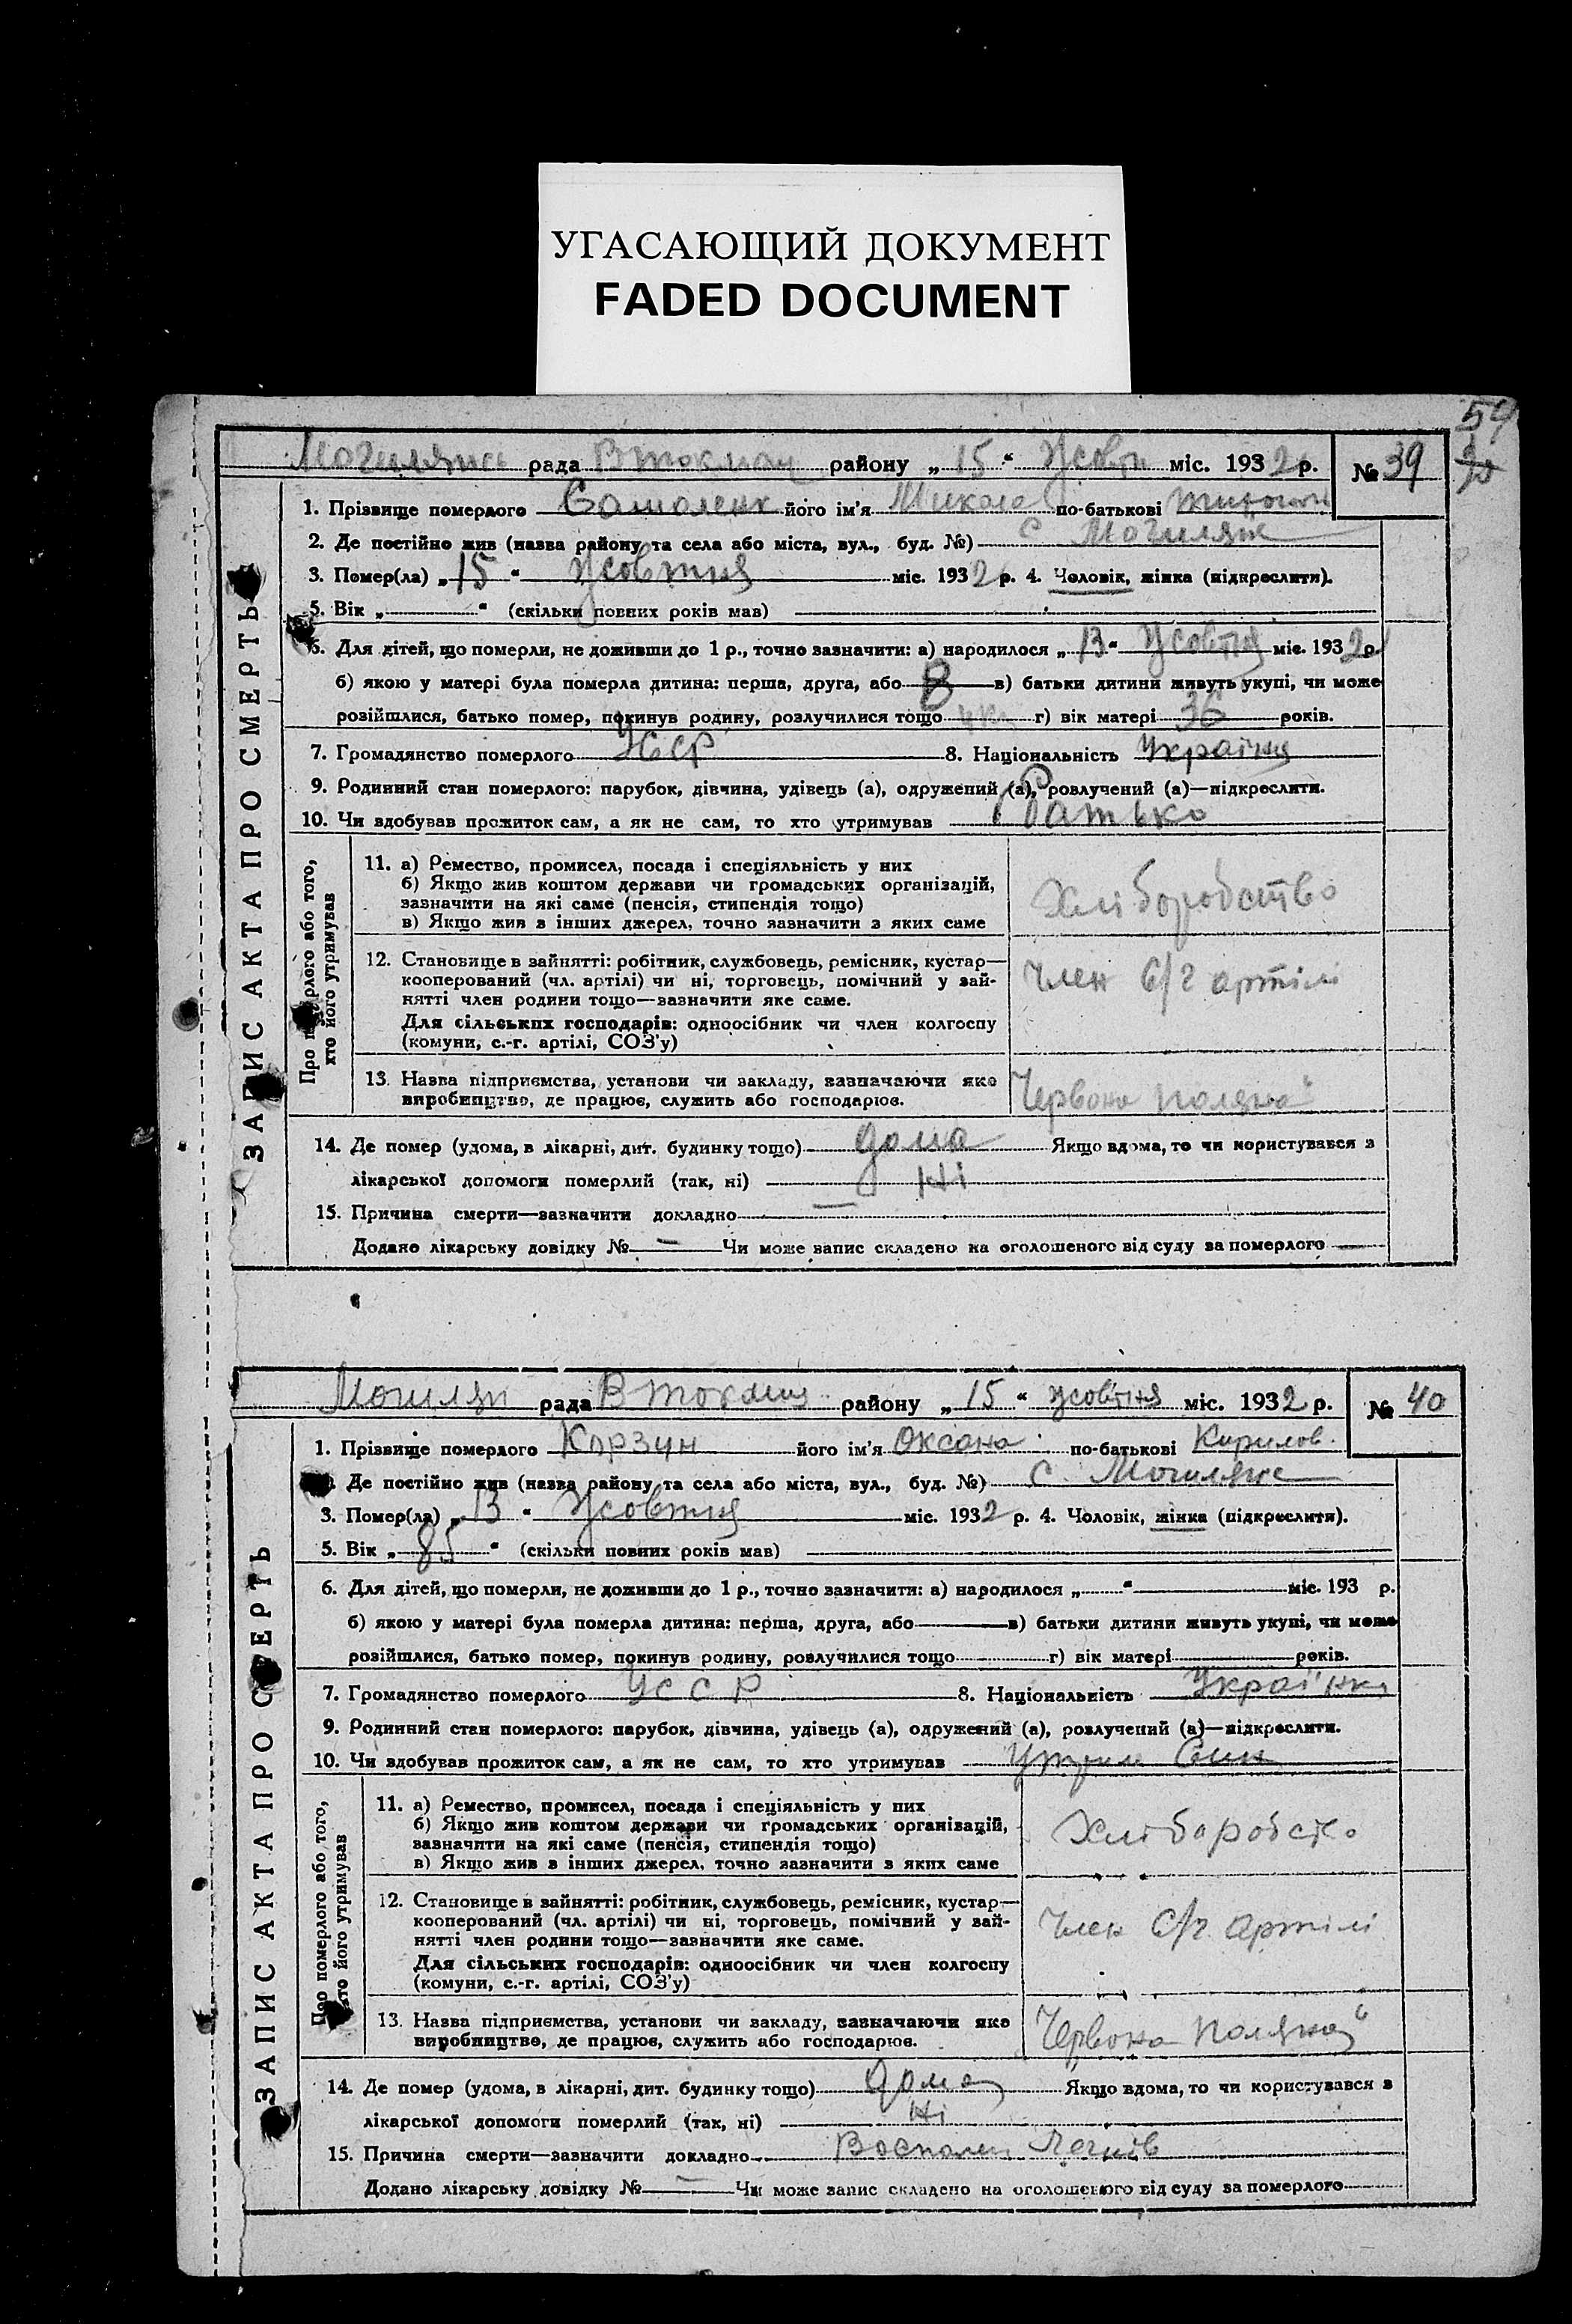 УГАСАЮЩИЙ ДОКУМЕНТ
FADED DOCUMENT
54
рада В токмац району „ 15 “ Жовтн міс. 1932 р. № 39
1. Прізвище померлого його ім'я Микола по-батькові
2. Де постійно жив (назва району та села або міста, вул., буд. №) с Могиляни
3. Помер(ла) „ 15 “ Жовтня міс. 1932 р. 4. Чоловік, жінка (підкреслити).
5. Вік „ “ (скільки повних років мав)
6. Для дітей, що померли, не доживши до 1 р., точно зазначити: а) народилося „ 13 “ Жовтня міс. 1932 р.
б) якою у матері була померла дитина: перша, друга, або 8 в) батьки дитини живуть укупі, чи може
розійшлися, батько помер, покинув родину, розлучилися тощо г) вік матері 36 років.
7. Громадянство померлого УССР 8. Національність Українц
9. Родинний стан померлого: парубок, дівчина, удівець (а), одружений (а), розлучений (а)—підкреслити.
10. Чи здобував прожиток сам, а як не сам, то хто утримував Батько
ЗАПИС АКТА ПРО СМЕРТЬ
Про померлого або того,
хто його утримував
11. а) Ремество, промисел, посада і спеціяльність у них
б) Якщо жив коштом держави чи громадських організацій,
зазначити на які саме (пенсія, стипендія тощо)
в) Якщо жив з інших джерел, точно зазначити з яких саме
Хліборобство
12. Становище в зайнятті: робітник, службовець, ремісник, кустар—
кооперований (чл. артілі) чи ні, торговець, помічний у зай-
нятті член родини тощо—зазначити яке саме.
Для сільських господарів: одноосібник чи член колгоспу
(комуни, с.-г. артілі, СОЗ'у)
Член С/г артілі
13. Назва підприємства, установи чи закладу, зазначаючи яке
виробництво, де працює, служить або господарює.
Червона поляна“
14. Де помер (удома, в лікарні, дит. будинку тощо) дома Якщо вдома, то чи користувався з
лікарської допомоги померлий (так, ні) Ні
15. Причина смерти—зазначити докладно —
Додано лікарську довідку № — Чи може запис складено на оголошеного від суду за померлого
Могилян рада В токмац району „ 15 “ жовтня міс. 1932 р. № 40
1. Прізвище померлого Корзун його ім'я Оксана по-батькові Кирилов.
2. Де постійно жив (назва району та села або міста, вул., буд. №) с. Могиляни
3. Помер(ла) „ 13 “ Жовтня міс. 1932 р. 4. Чоловік, жінка (підкреслити).
5. Вік „ 85 “ (скільки повних років мав)
6. Для дітей, що померли, не доживши до 1 р., точно зазначити: а) народилося „ “ міс. 193 р.
б) якою у матері була померла дитина: перша, друга, або в) батьки дитини живуть укупі, чи може
розійшлися, батько помер, покинув родину, розлучилися тощо г) вік матері років.
7. Громадянство померлого УССР 8. Національність Українка
9. Родинний стан померлого: парубок, дівчина, удівець (а), одружений (а), розлучений (а)—підкреслити.
10. Чи здобував прожиток сам, а як не сам, то хто утримував Утрим Син
ЗАПИС АКТА ПРО СМЕРТЬ
Про померлого або того,
хто його утримував
11. а) Ремество, промисел, посада і спеціяльність у них
б) Якщо жив коштом держави чи громадських організацій,
зазначити на які саме (пенсія, стипендія тощо)
в) Якщо жив з інших джерел, точно зазначити з яких саме
Хліборобство
12. Становище в зайнятті: робітник, службовець, ремісник, кустар—
кооперований (чл. артілі) чи ні, торговець, помічний у зай-
нятті член родини тощо—зазначити яке саме.
Для сільських господарів: одноосібник чи член колгоспу
(комуни, с.-г. артілі, СОЗ'у)
Член С/г артілі
13. Назва підприємства, установи чи закладу, зазначаючи яке
виробництво, де працює, служить або господарює.
Червона Поляна“
14. Де помер (удома, в лікарні, дит. будинку тощо) дома Якщо вдома, то чи користувався з
лікарської допомоги померлий (так, ні) Ні
15. Причина смерти—зазначити докладно Воспален Легків
Додано лікарську довідку № — Чи може запис складено на оголошеного від суду за померлого